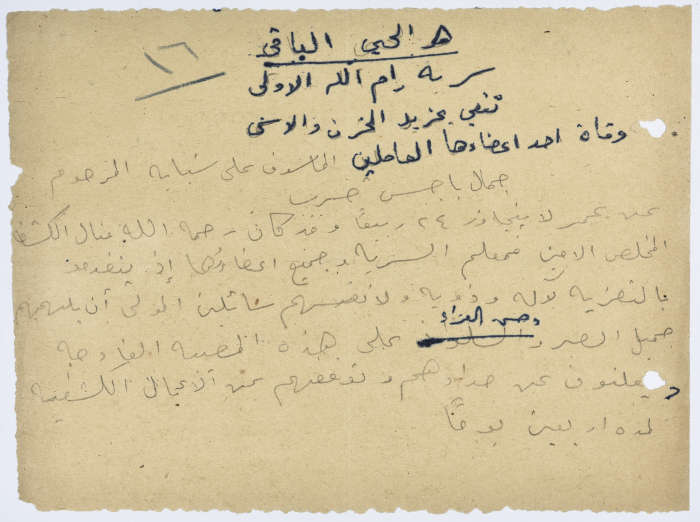 ١٦
هو الحي الباقي
سرية رام الله الاولى
تنعي بمزيد الحزن والاسى
وفاة احد اعضاءها العاملين الماسوف على شبابه المرحوم
جمال باجس حرب
عن عمر لا يتجاوز ٢٤ ربيعا وقد كان رحمه الله مثال الكشاف
المخلص الامين فمعلم السرية وجميع اعضاءها إذ يتقدمون
بالتعزية لآله وذويه ولانفسهم سائلين المولى أن يلهمهم
وحسن العزاء
جميل الصبر والسلوان على هذه المصيبة الفادحة
يعلنون عن حدادهم وتوقفهم عن الاعمال الكشفية
لمدة اربعين يوماً